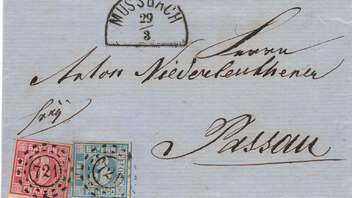 MUSSBACH
29
3
Herrn
Anton Niederleuthener
Passau
721